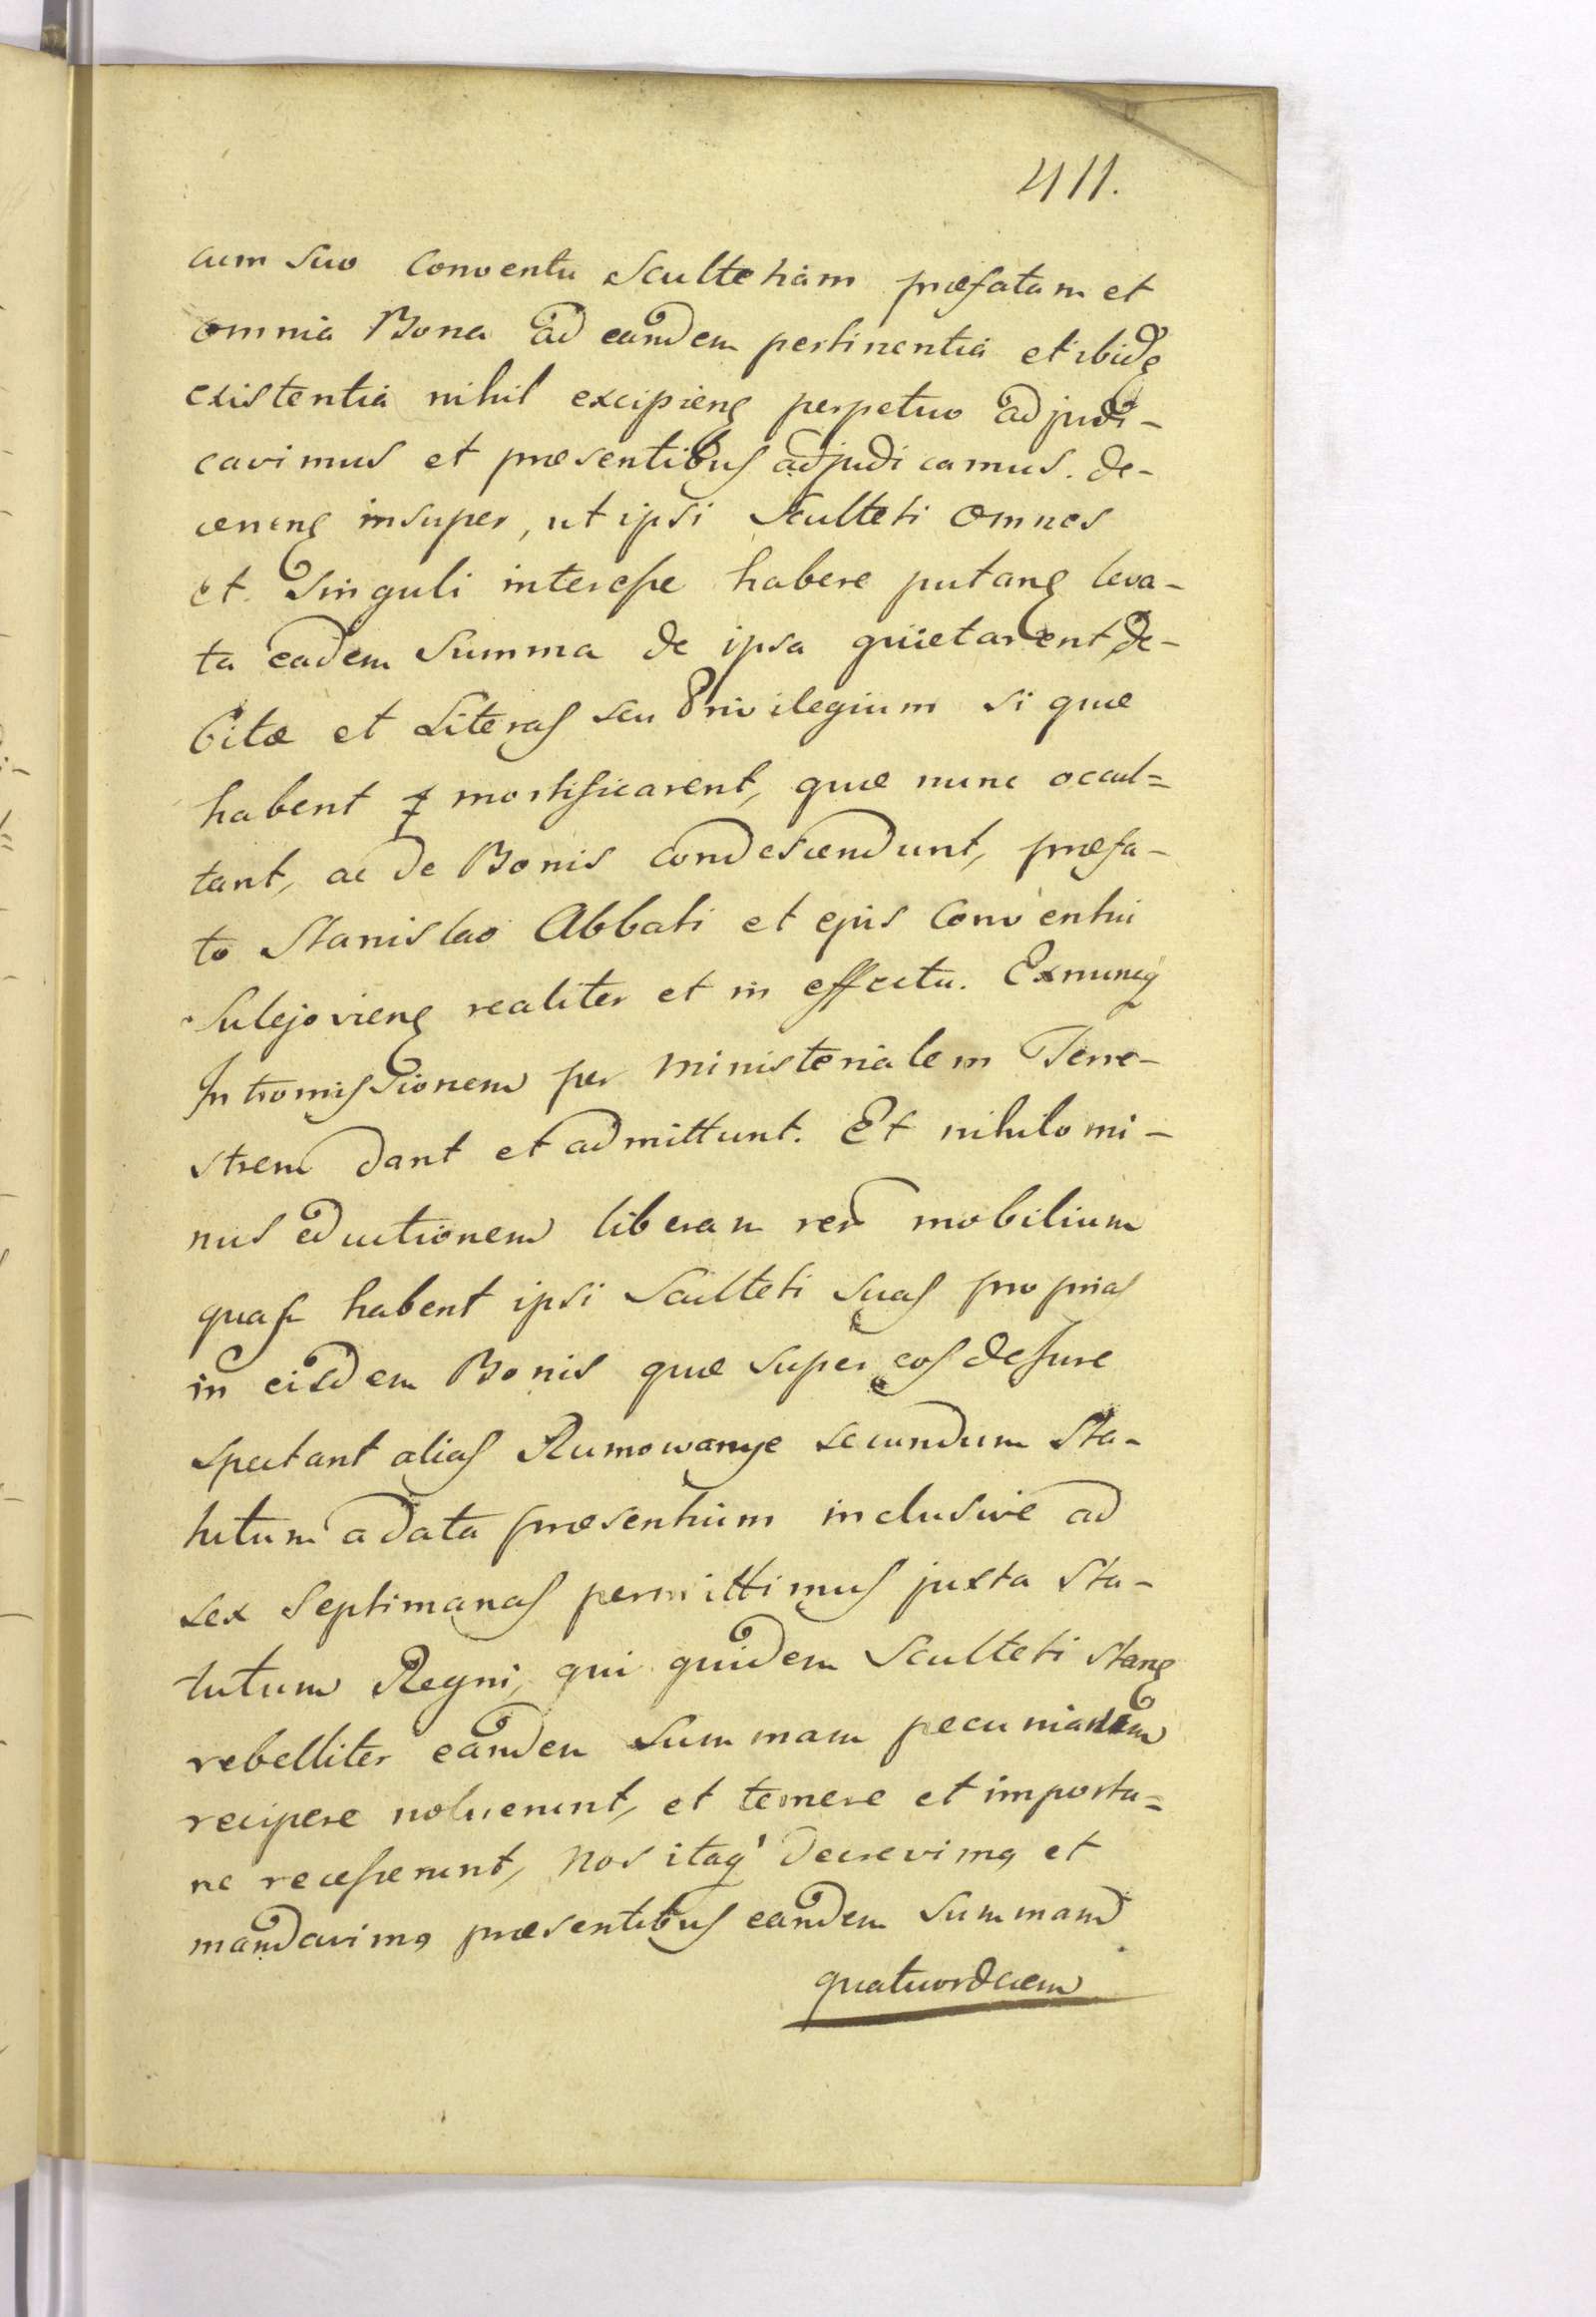 411.
cum suo Conventu Scultetiam præfatam et
omnia Bona ad eandem pertinentia et ibidē
existentia nihil excipienꝭ perpetuo adjudi-
cavimus et præsentibus adjudicamus. de-
cernenꝭ insuper, ut ipsi Sculteti omnes
et Singuli interesse habere putanꝭ leva-
ta eadem Summa de ipsa quietarent de-
bitæ et Literas seu Privilegium si quæ
habent mortificarent, quæ nunc occul=
tant, ac de Bonis condescendunt, præfa-
to Stanislao Abbati et ejus Conventui
Sulejovienꝭ realiter et in effectu. Exnuncq
Intromissionem per Ministerialem Terre-
strem dant et admittunt. Et nihilomi-
nus eductionem liberam rer̃ mobilium
quas habent ipsi Sculteti suas proprias
in eisdem Bonis quæ super eos de Jure
spectant alias Rumowanye secundum Sta-
tutum a data præsentium inclusive ad
sex Septimanas permittimus juxta Sta-
tutum Regni, qui quidem Sculteti stanꝭ
rebelliter eandem Summam pecuniariam
recipere noluerunt, et temere et importu=
ne recesserunt, Nos itaq' decrevimꝯ et
mandavimꝯ præsentibus eandem Summam
quatuordecem